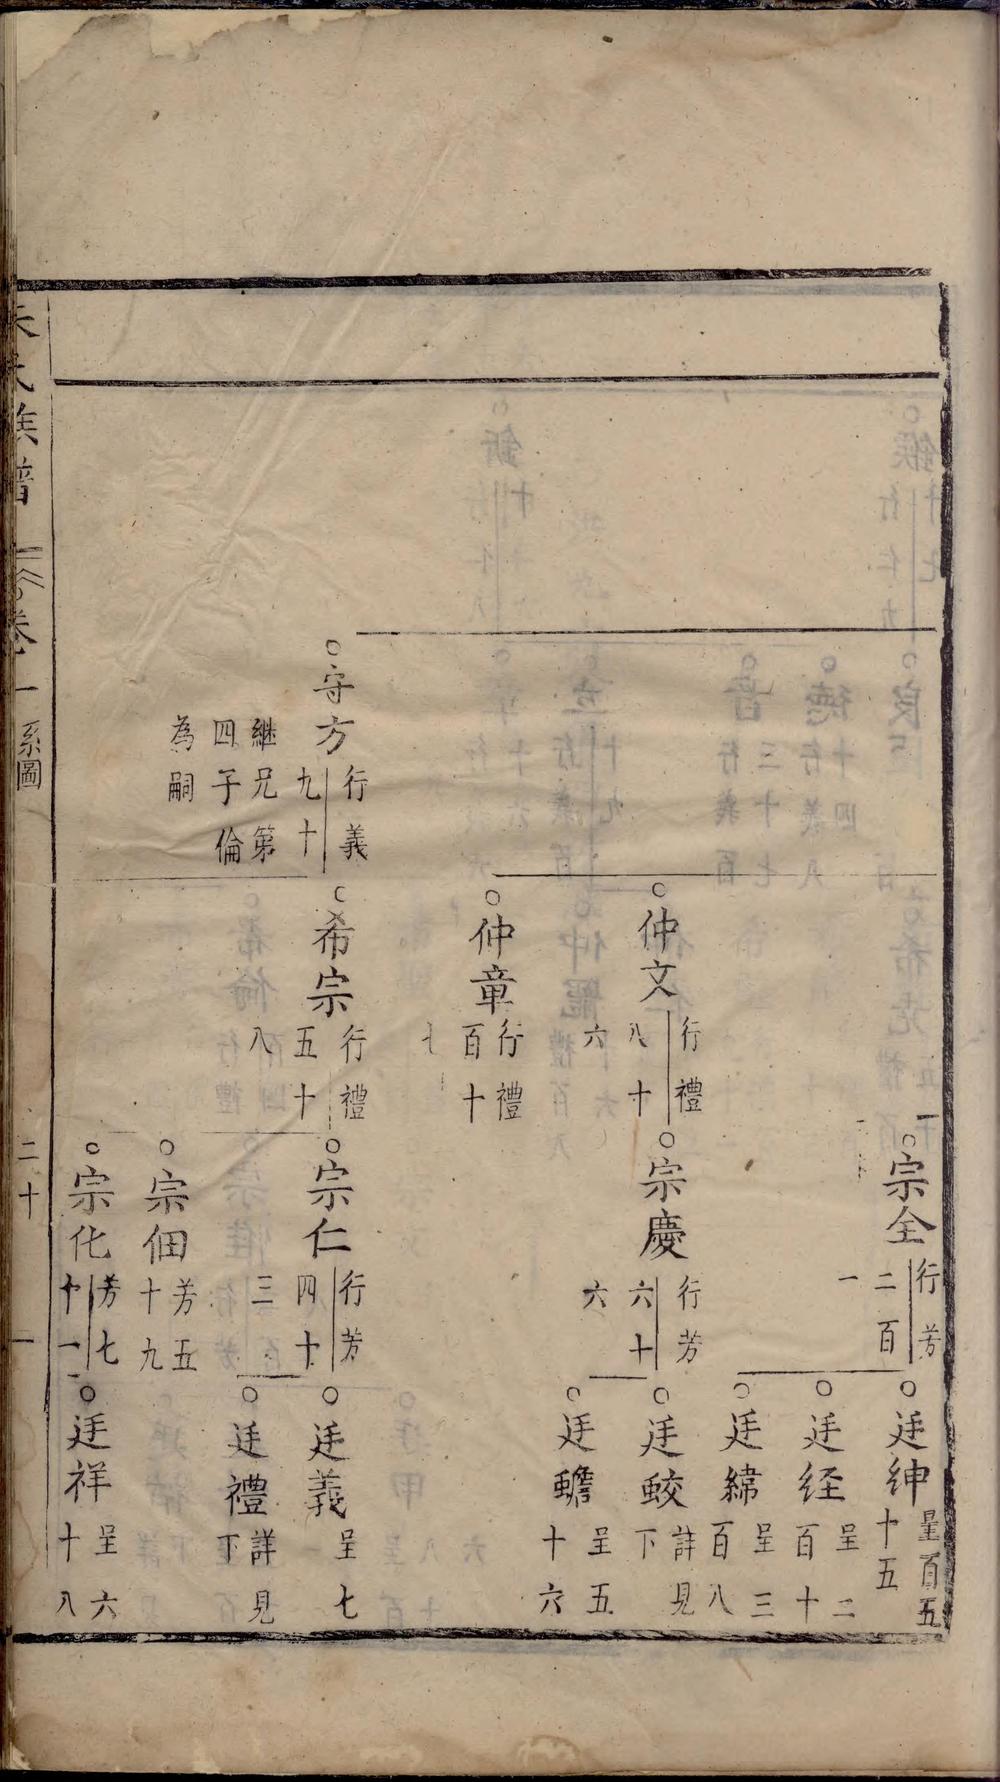 氏族譜
卷一
系圖
二十
守方
行義
九十
継兄第
四子倫
為嗣
仲文
行禮
八十
六
仲章
行禮
百十
七
希宗
行禮
五十
八
宗全
行芳
二百
一
宗慶
行芳
六十
六
宗仁
行芳
四十
三
宗佃
芳五
十九
宗化
芳七
十一
廷紳
呈百五
十五
廷经
呈二
百十
廷緯
呈三
百八
廷蛟
詳見
下
廷蟾
呈五
十六
廷義
呈七
廷禮
詳見
下
廷祥
呈六
十八